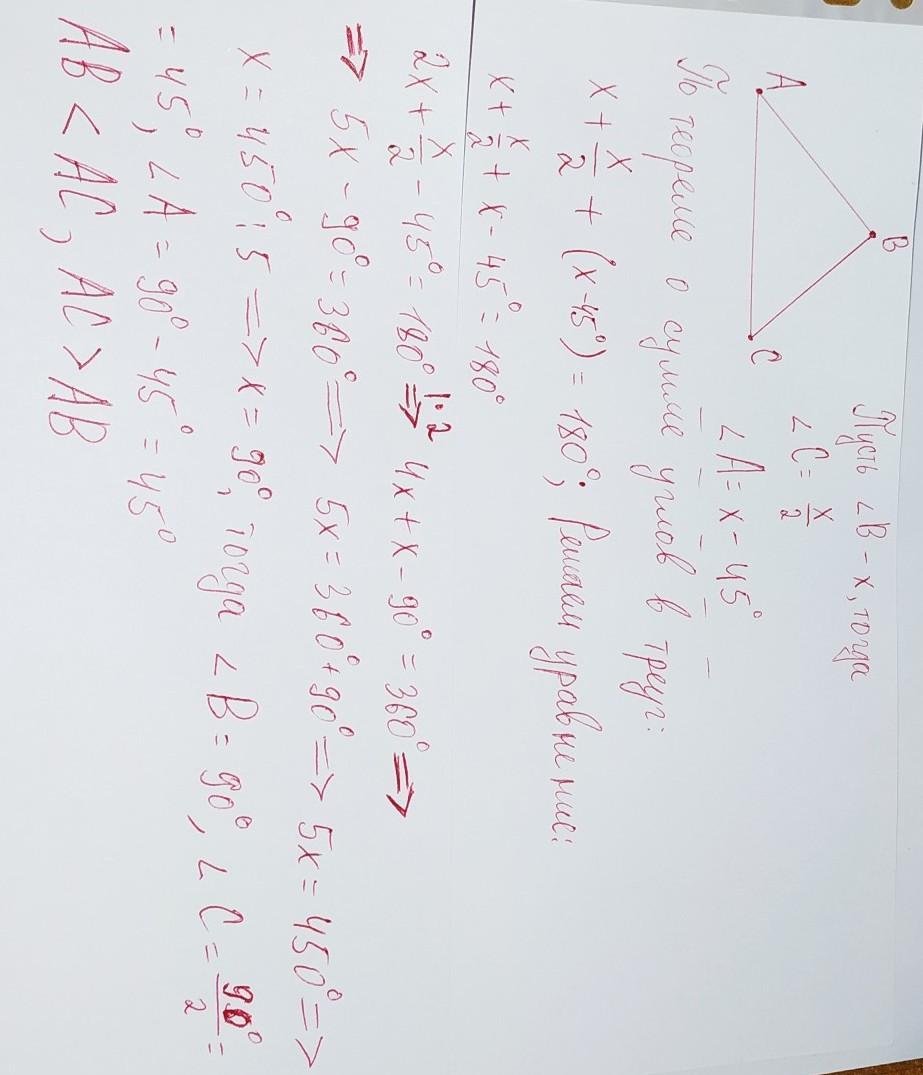 A
B
C
Пусть ∠B - x, тогда
∠C = x/2
∠A = x - 45°
По теореме о сумме углов в треуг:
x + x/2 + (x-45°) = 180°; Решим уравнение:
x + x/2 + x - 45° = 180°
2x + x/2 - 45° = 180° |·2 => 4x + x - 90° = 360° =>
=> 5x - 90° = 360° => 5x = 360° + 90° => 5x = 450° =>
x = 450° : 5 => x = 90°, тогда ∠B = 90°, ∠C = 90°/2 =
= 45°, ∠A = 90° - 45° = 45°
AB < AC, AC > AB